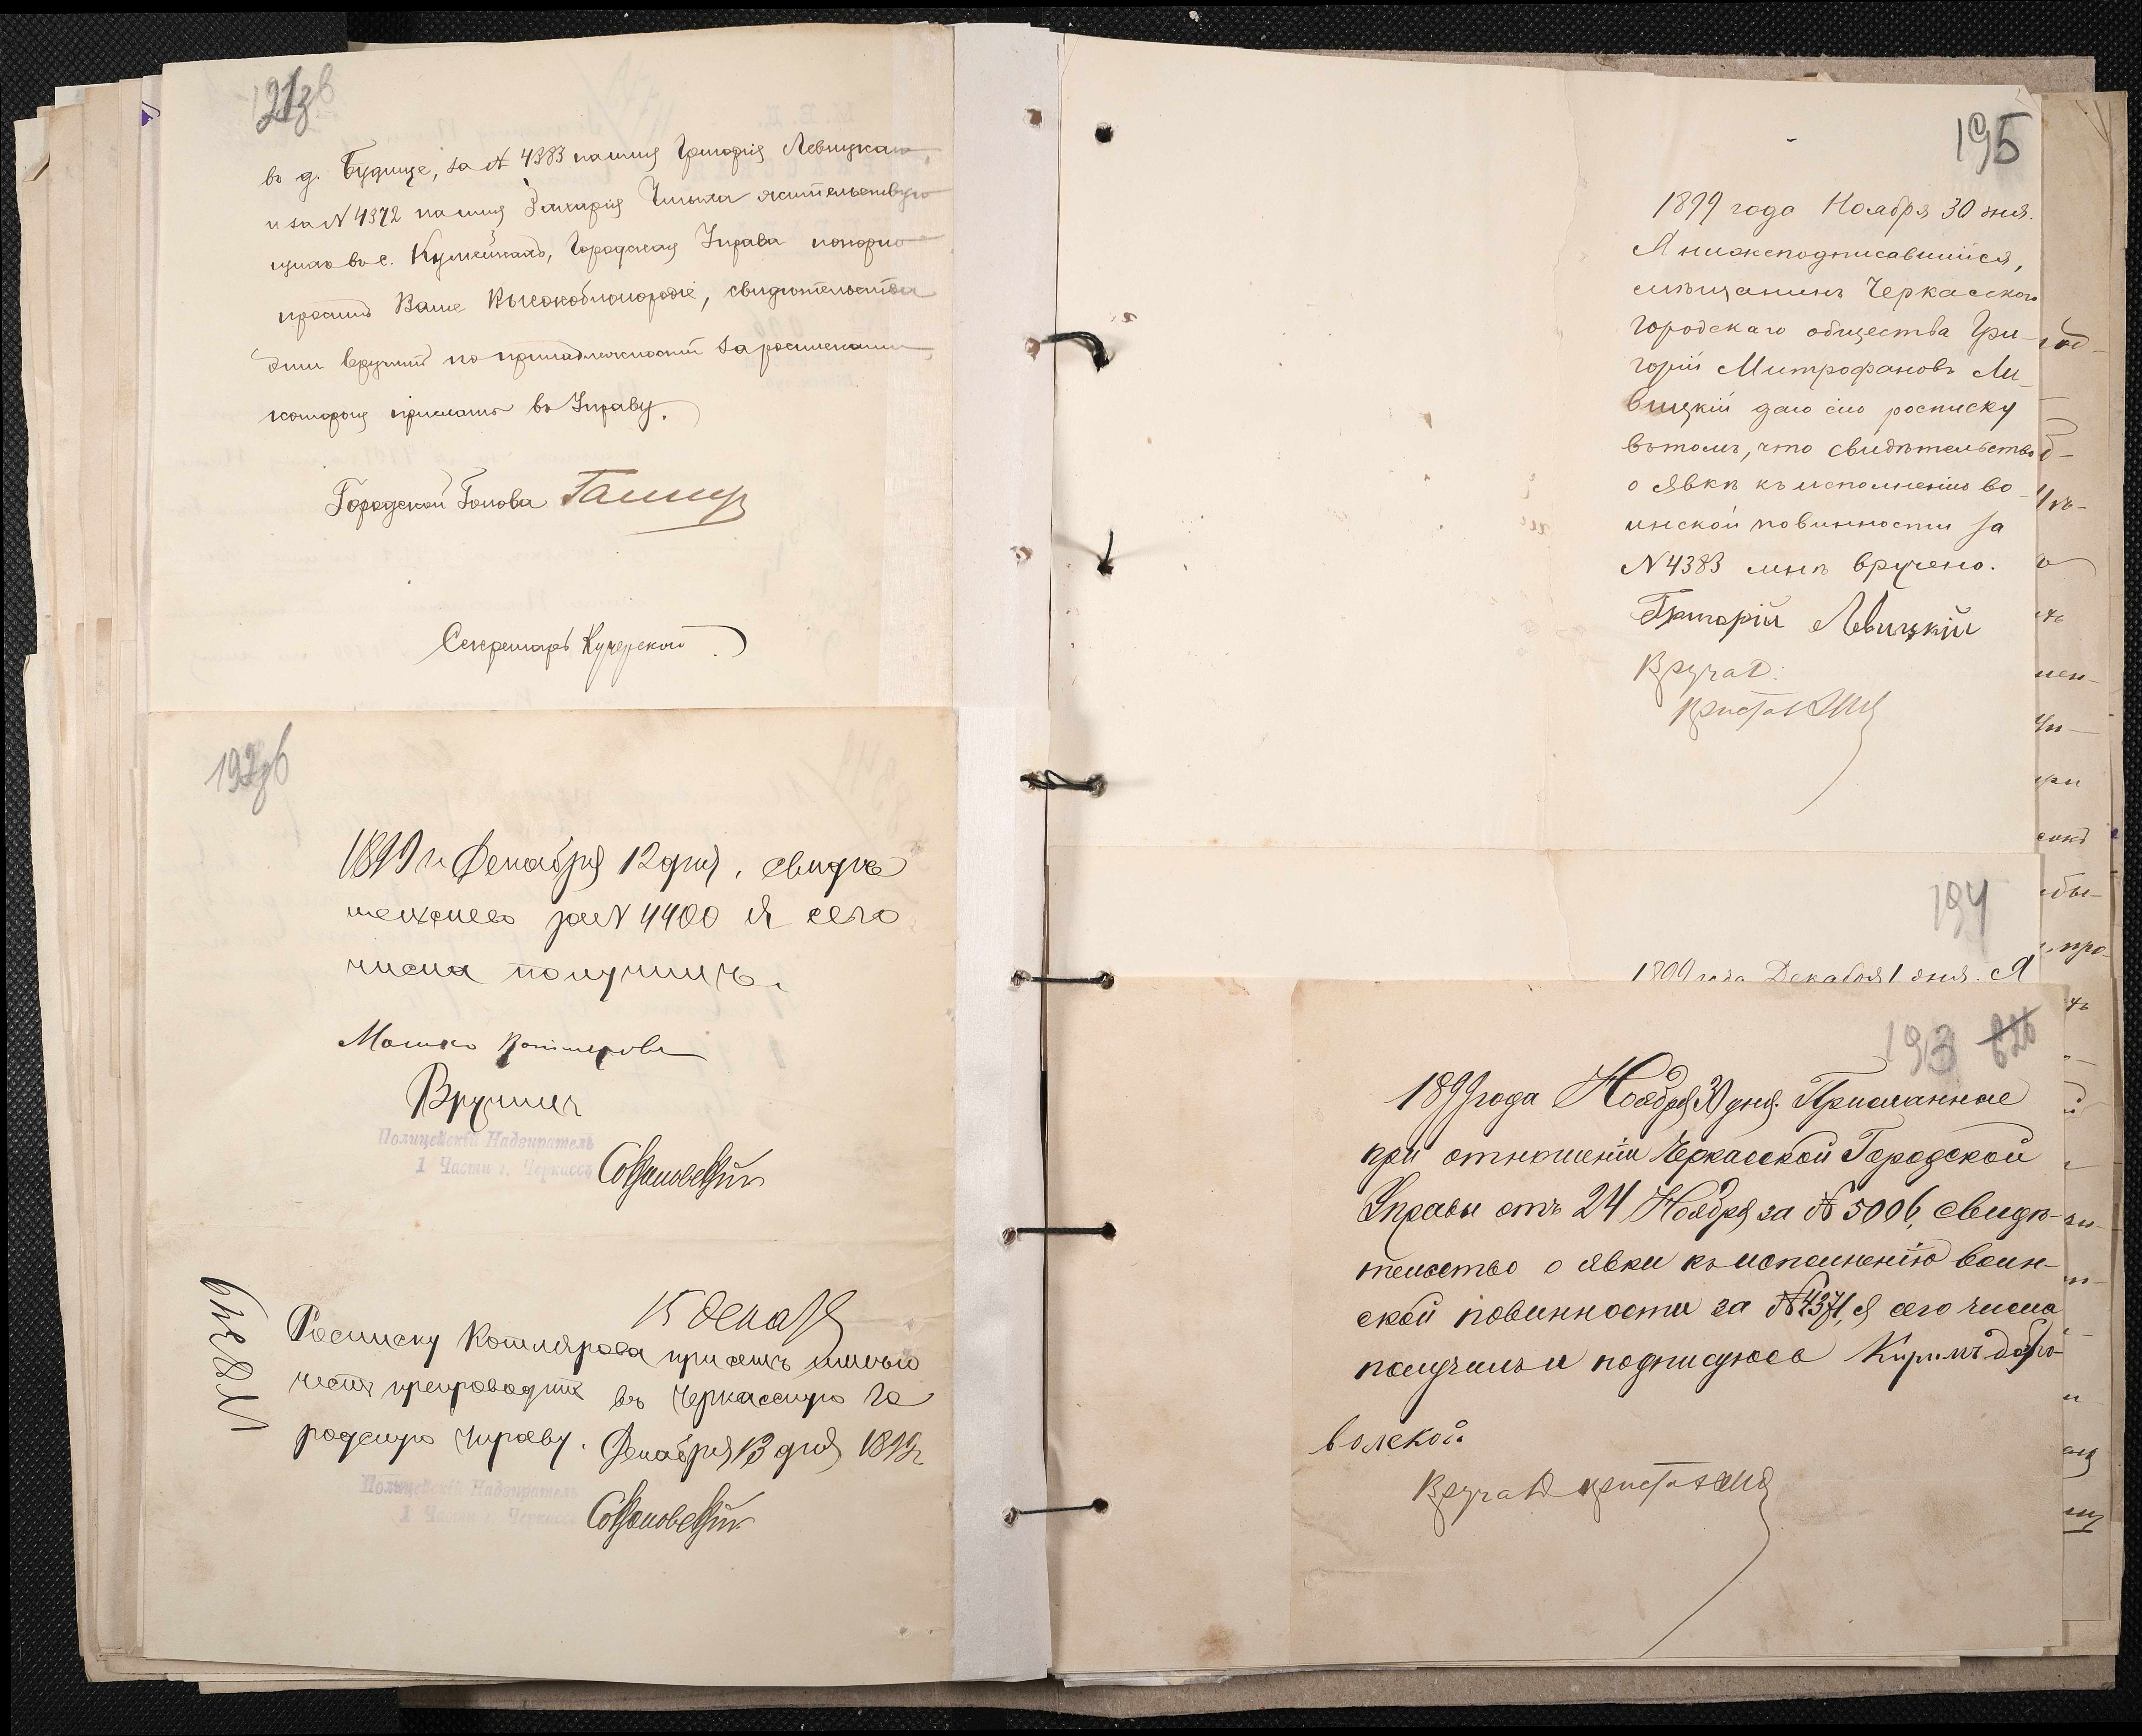 въ д. Будище, за № 4383 на имя Григорія Левицкаго
и за № 4372 на имя Захарія жительствую
щихъ въ с. Кумейкахъ, Городская Управа покорно
проситъ Ваше Высокоблагородіе, свидѣтельства
эти вручить по принадлежности за росписками,
которыя прислать въ Управу.
Городской Голова
Секретарь Кучерской
192об
1899 г. Декабря 12 дня, свидѣ
за № 4400 я сего
числа получилъ.
Мошко Котляровъ
Вручилъ
Полицейскій Надзиратель
1 Части г. Черкассъ
15 Декабря
№ 8349
Росписку Котлярова при семъ
честь препроводить въ Черкасскую Го
родскую Управу. Декабря 13 дня 1899 г.
Полицейскій Надзиратель
1 Части г. Черкассъ
195
1899 года Ноября 30 дня.
Я нижеподписавшійся,
мѣщанинъ Черкасскаго
Городскаго общества Гри-
горій Митрофановъ Ли-
вицкій даю сію росписку
въ томъ, что свидѣтельство
о явкѣ къ исполненію во-
инской повинности за
№ 4383 мнѣ вручено.
Григорій Лѣвицкій
Вручалъ:
194
1899 года Декабря 1 дня. Я
193
1899 года Ноября 30 дня. Присланное
при отношеніи Черкасской Городской
Управы отъ 24 Ноября за № 5006, свидѣ-
тельство о явки къ исполненію воин-
ской повинности за № 4371, я сего числа
получилъ и подписуюсь Добро-
волской
Вручалъ